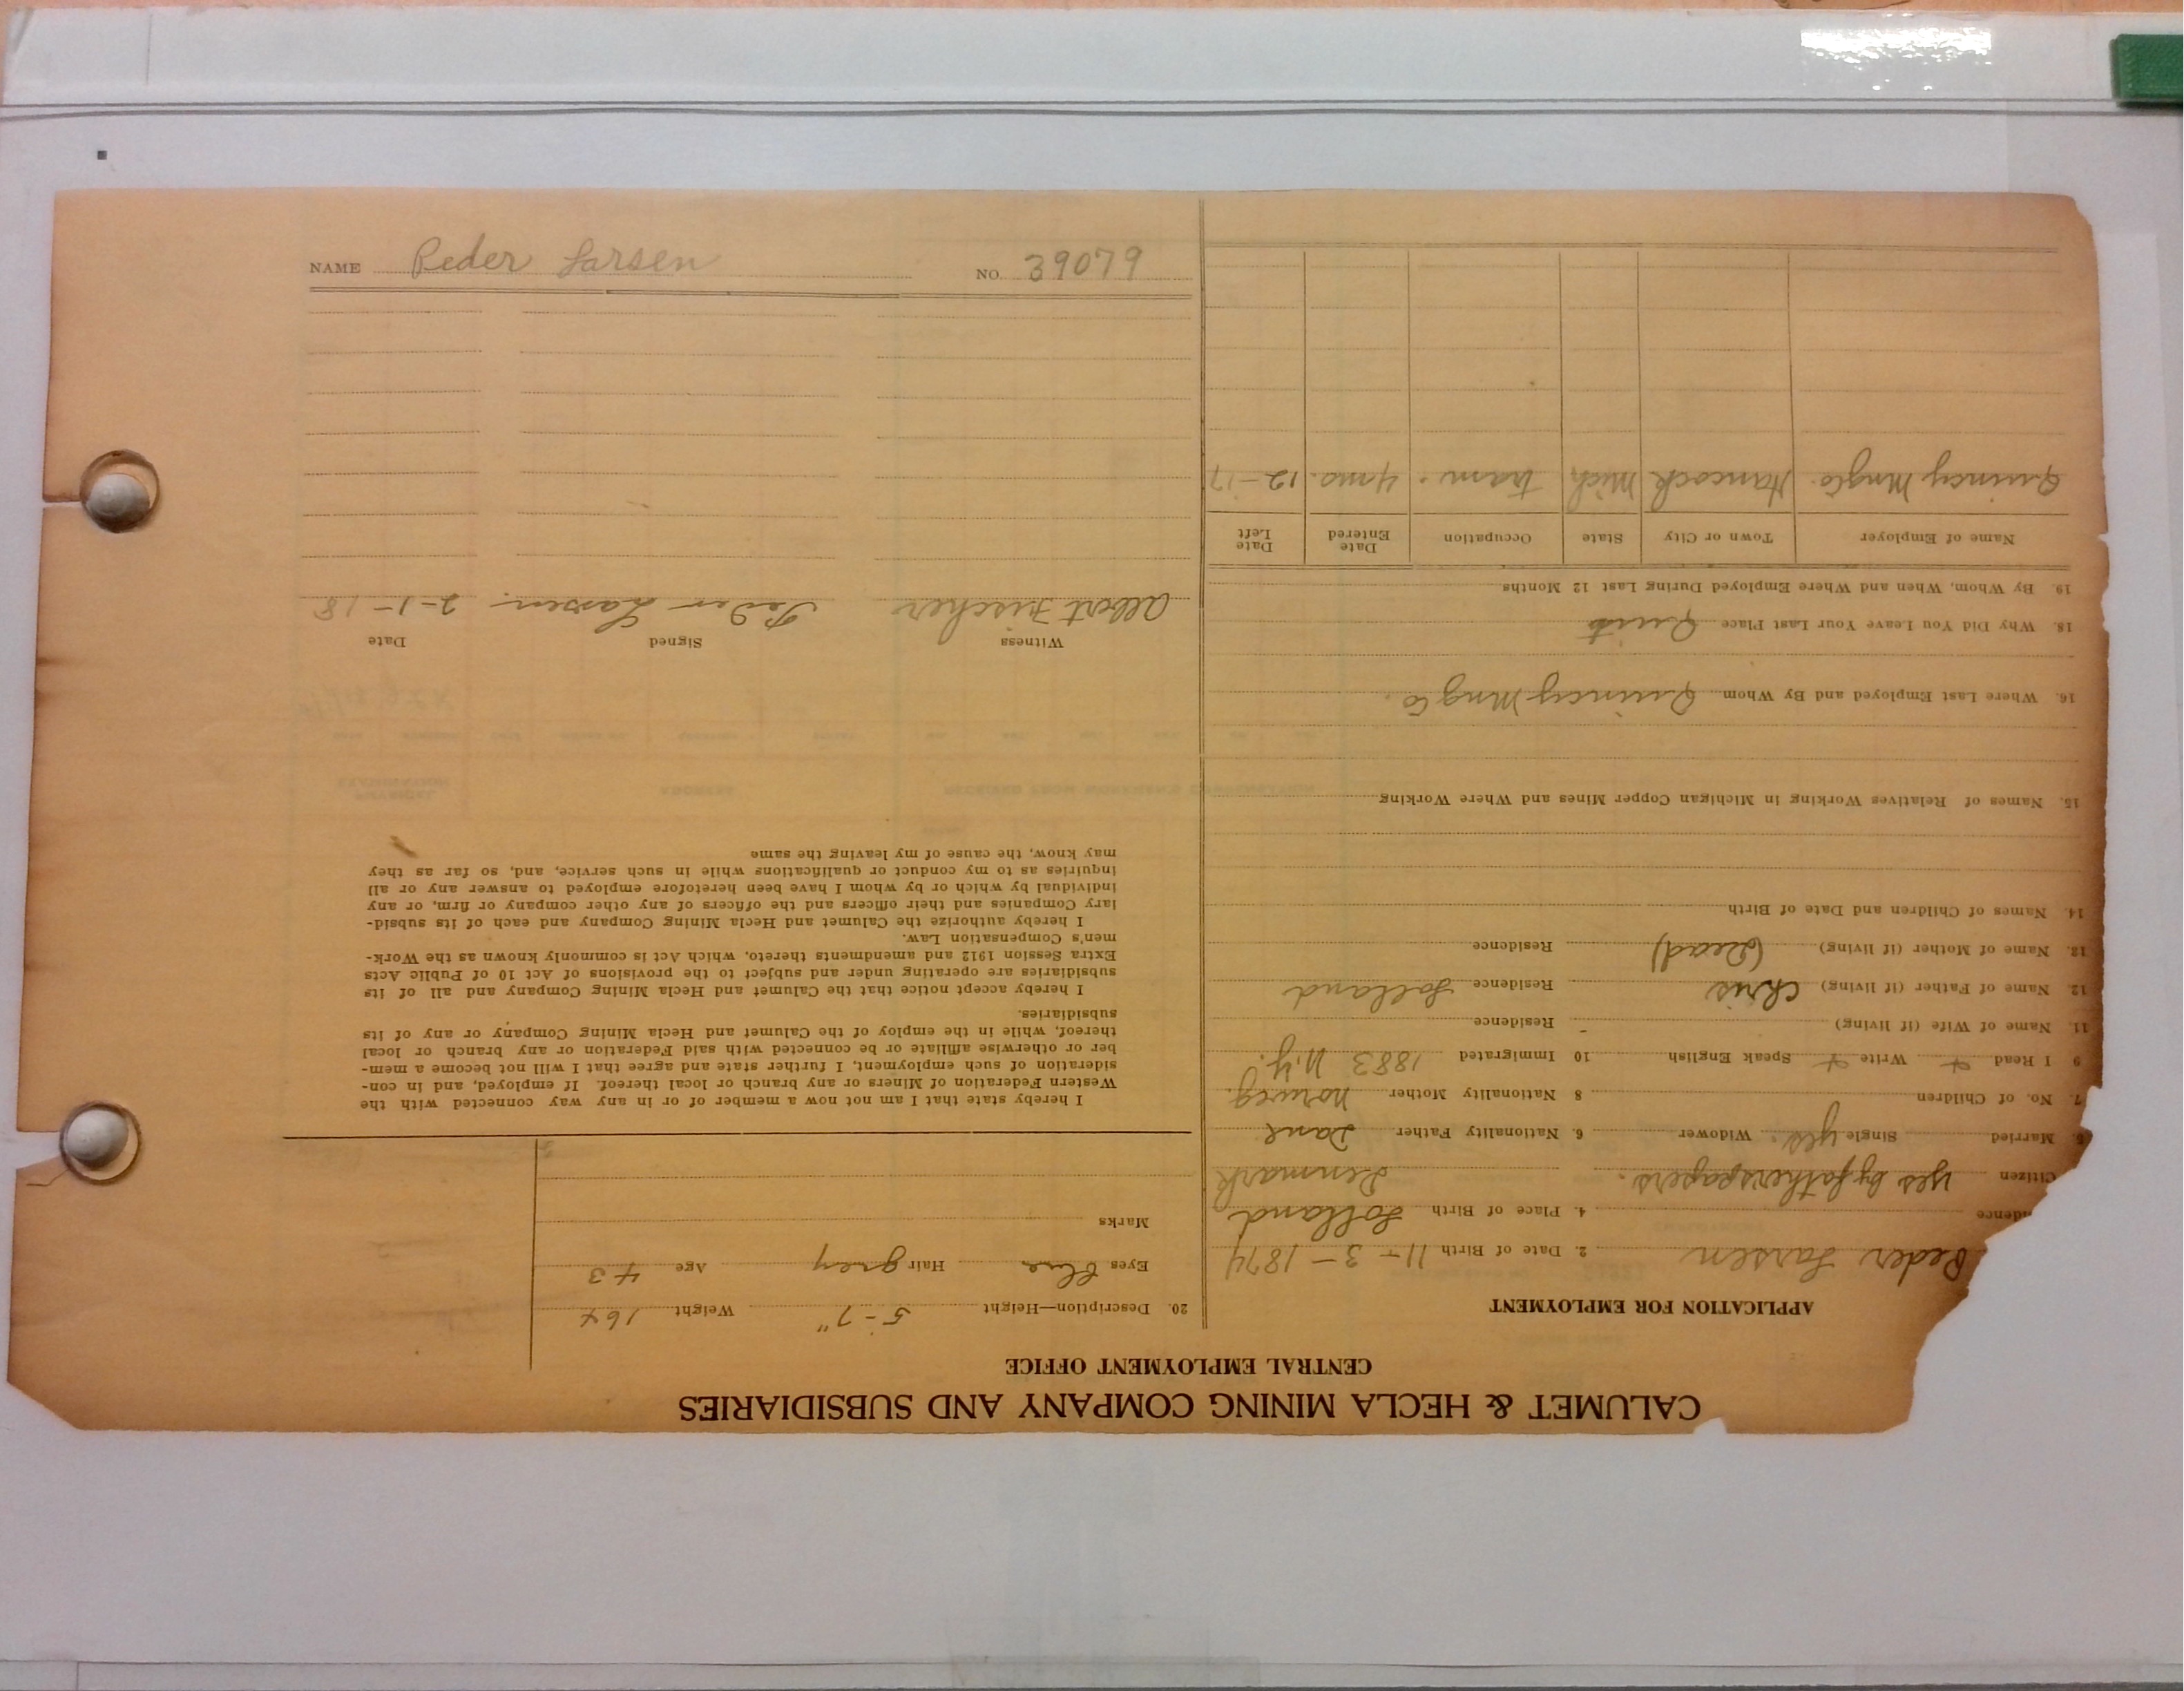 CALUMET & HECLA MINING COMPANY AND SUBSIDIARIES
CENTRAL EMPLOYMENT OFFICE
APPLICATION FOR EMPLOYMENT
Peder Larsen 2. Date of Birth 11 - 3 - 1874
idence 4. Place of Birth Lolland
Citizen yes by fatherspapers. Denmark
5. Married Single yes. Widower 6. Nationality Father Dane
7. No. of Children 8 Nationality Mother Norweg.
9 I Read + Write + Speak English 10 Immigrated 1883 N.Y.
11. Name of Wife (if living) - Residence
12. Name of Father (if living) Chris Residence Lolland
13. Name of Mother (if living) (Dead) Residence
14. Names of Children and Date of Birth
15. Names of Relatives Working in Michigan Copper Mines and Where Working
16. Where Last Employed and By Whom Quincy Mng Co.
18. Why Did You Leave Your Last Place Quit
19. By Whom, When and Where Employed During Last 12 Months
Name of Employer Town or City State Occupation Date Entered Date Left
Quincy Mng Co. Hancock Mich tram. 4 mo. 12-17
20. Description—Height 5-7" Weight 164
Eyes blue Hair grey Age 43
Marks
I hereby state that I am not now a member of or in any way connected with the
Western Federation of Miners or any branch or local thereof. If employed, and in con-
sideration of such employment, I further state and agree that I will not become a mem-
ber or otherwise affiliate or be connected with said Federation or any branch or local
thereof, while in the employ of the Calumet and Hecla Mining Company or any of its
subsidiaries.
I hereby accept notice that the Calumet and Hecla Mining Company and all of its
subsidiaries are operating under and subject to the provisions of Act 10 of Public Acts
Extra Session 1912 and amendments thereto, which Act is commonly known as the Work-
men's Compensation Law.
I hereby authorize the Calumet and Hecla Mining Company and each of its subsid-
iary Companies and their officers and the officers of any other company or firm, or any
individual by which or by whom I have been heretofore employed to answer any or all
inquiries as to my conduct or qualifications while in such service, and, so far as they
may know, the cause of my leaving the same
Witness Signed Date
Albert Fischer Peder Larsen. 2-1-18
NAME Peder Larsen NO. 39079